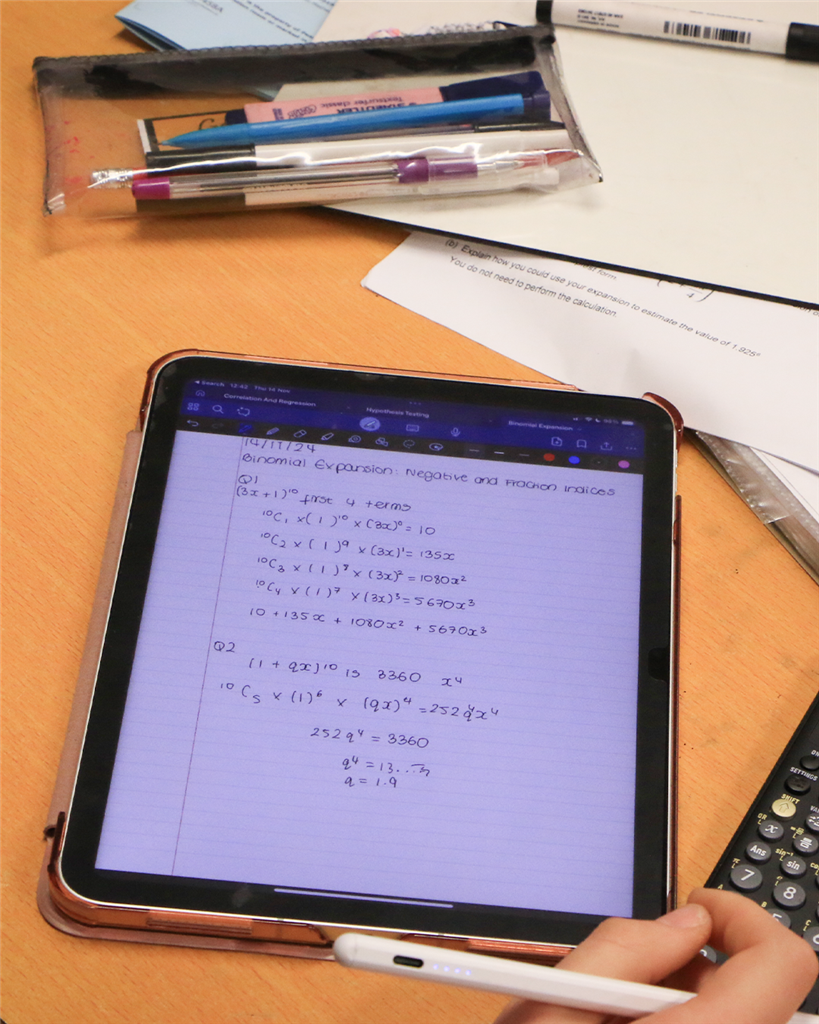 STAEDTLER
Textsurfer classic
(b) Explain how you could use your expansion to estimate the value of 1.925⁵
You do not need to perform the calculation.
Search 12:42 Thu 14 Nov
Correlation And Regression
Hypothesis Testing
Binomial Expansion
14/11/24
Binomial Expansion: Negative and Fraction Indices
Q1
(3x+1)¹⁰ first 4 terms
¹⁰C₁ ×(1)¹⁰ × (3x)⁰ = 10
¹⁰C₂ × (1)⁹ × (3x)¹ = 135x
¹⁰C₃ × (1)⁸ × (3x)² = 1080x²
¹⁰C₄ × (1)⁷ × (3x)³ = 5670x³
10 + 135x + 1080x² + 5670x³
Q2
(1 + qx)¹⁰ is 3360 x⁴
¹⁰C₅ × (1)⁶ × (qx)⁴ = 252q⁴x⁴
252q⁴ = 3360
q⁴ = 13...
q = 1.9
ON
SETTINGS
SHIFT
x
Ans
sin⁻¹
sin
7
8